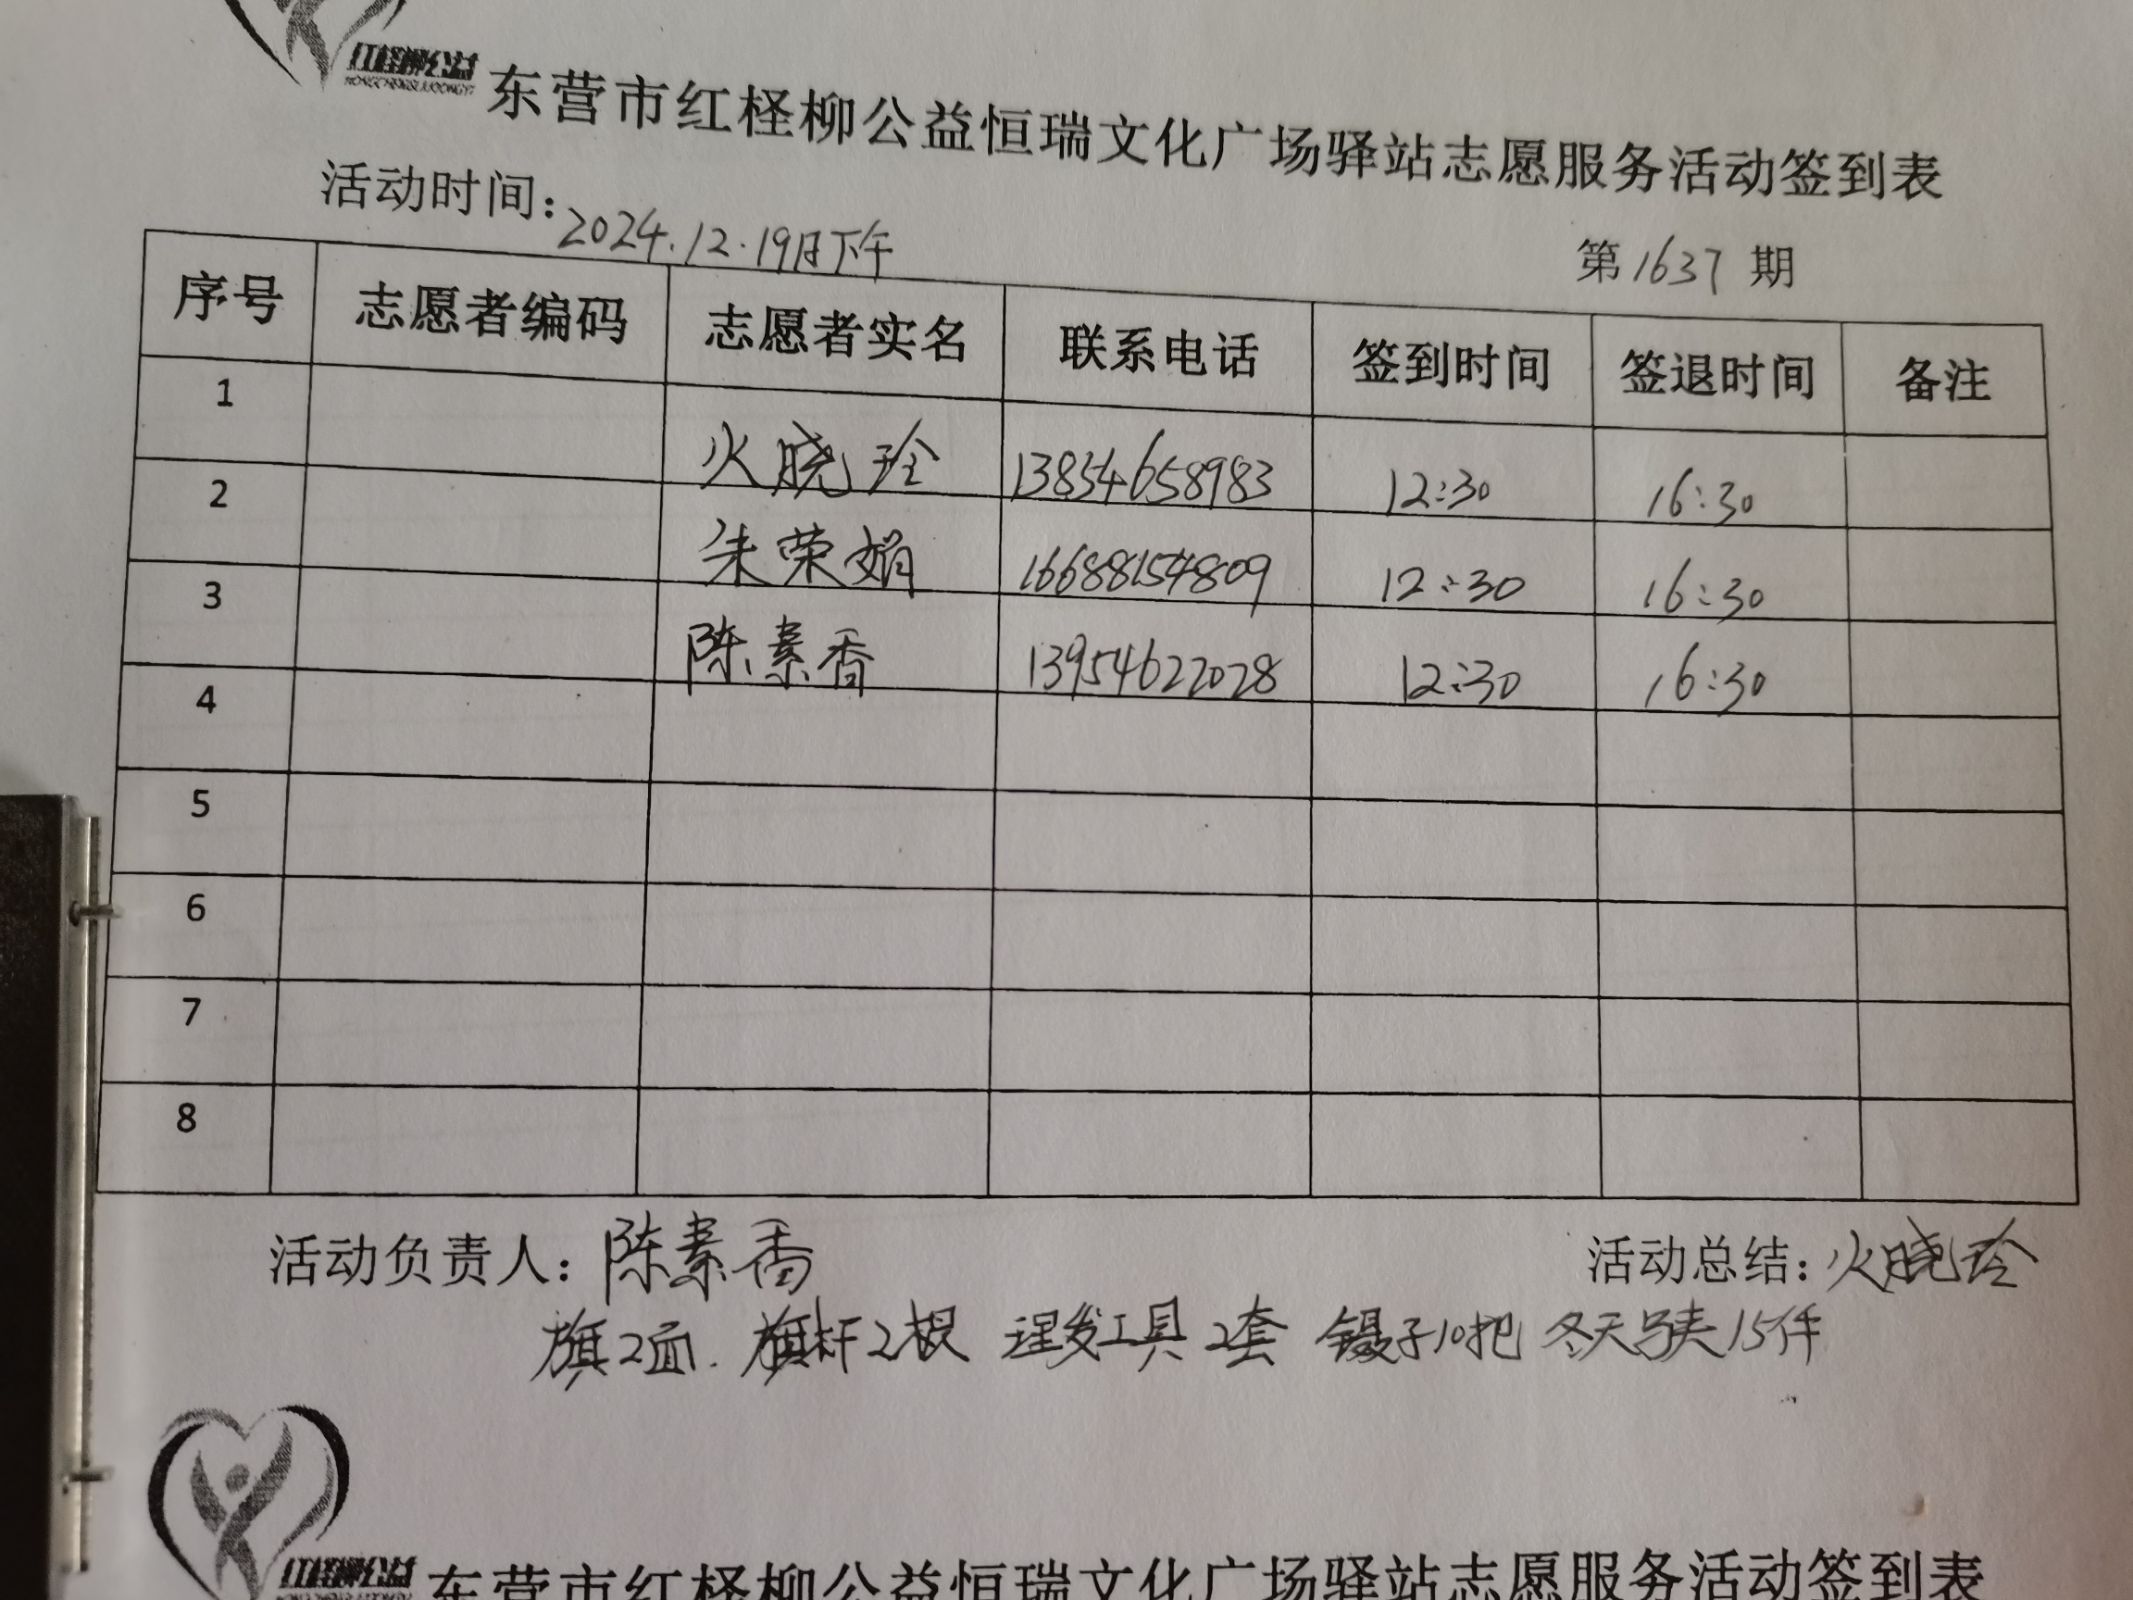 红柽柳公益
东营市红柽柳公益恒瑞文化广场驿站志愿服务活动签到表
活动时间：2024.12.19日下午 第1637期
序号 志愿者编码 志愿者实名 联系电话 签到时间 签退时间 备注
1 火晓玲 13854658983 12:30 16:30
2 朱荣娟 16688154809 12:30 16:30
3 陈素香 13954622028 12:30 16:30
4
5
6
7
8
活动负责人：陈素香 活动总结：火晓玲
旗2面. 旗杆2根 理发工具2套 镊子10把 冬天马夹15件
红柽柳公益
东营市红柽柳公益恒瑞文化广场驿站志愿服务活动签到表